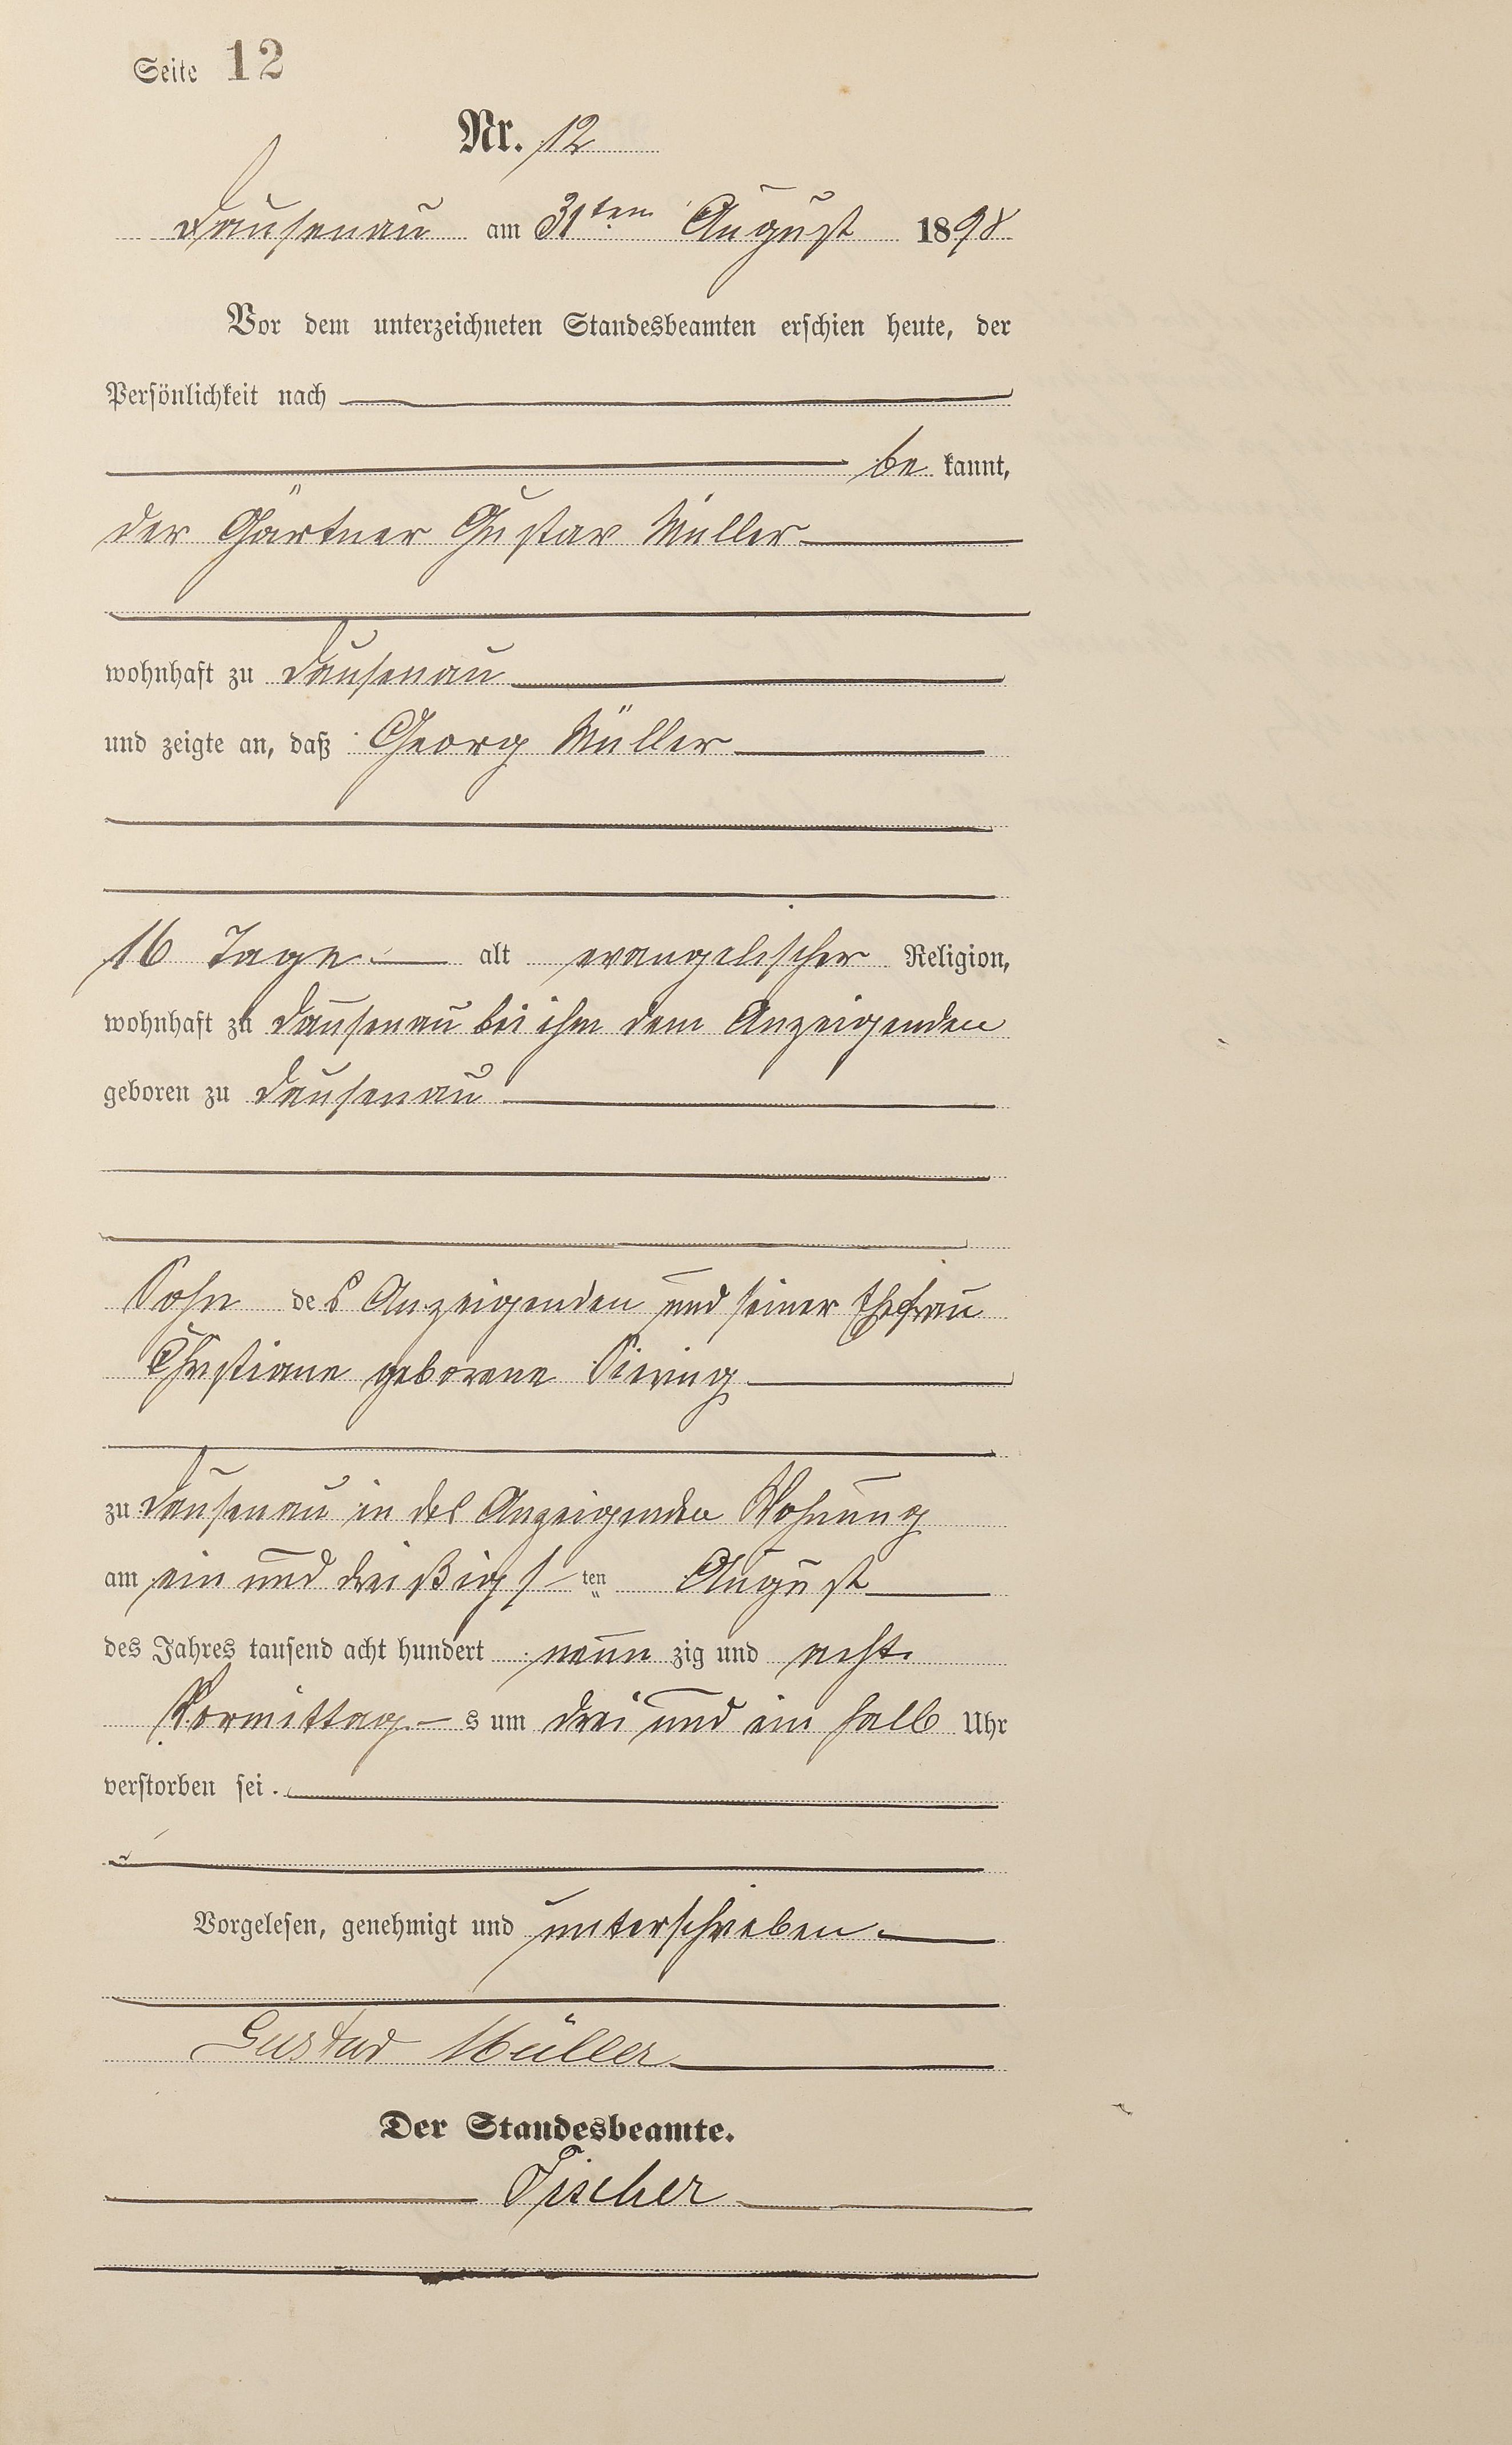 Seite 12
Nr. 12
Dausenau am 31ten August 1898
Vor dem unterzeichneten Standesbeamten erschien heute, der
Persönlichkeit nach
be kannt,
der Gärtner Gustav Müller
wohnhaft zu Dausenau
und zeigte an, daß Georg Müller
16 Tage alt evangelischer Religion,
wohnhaft zu Dausenau bei ihm dem Anzeigenden
geboren zu Dausenau
Sohn des Anzeigenden und seiner Ehefrau
Christiane geborene
zu Dausenau in des Anzeigenden Wohnung
am ein und dreißigsten August
des Jahres tausend acht hundert neun zig und acht
Vormittags um drei und ein halb Uhr
verstorben sei.
Vorgelesen, genehmigt und unterschrieben.
Gustav Müller
Der Standesbeamte.
Fischer